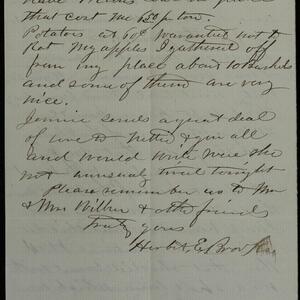 that cost me
Potatoes at 60¢ waranted not to
Rot My apples I gathered off
from my place about 10 bushels
and some of them are very
nice.
Jennie sends a great deal
of love to Nettie & you all
and would write were she
not unusually tired tonight
Please remember us to Mr
& Mrs Wilbur & other friends
Truly yours
Herbert E.